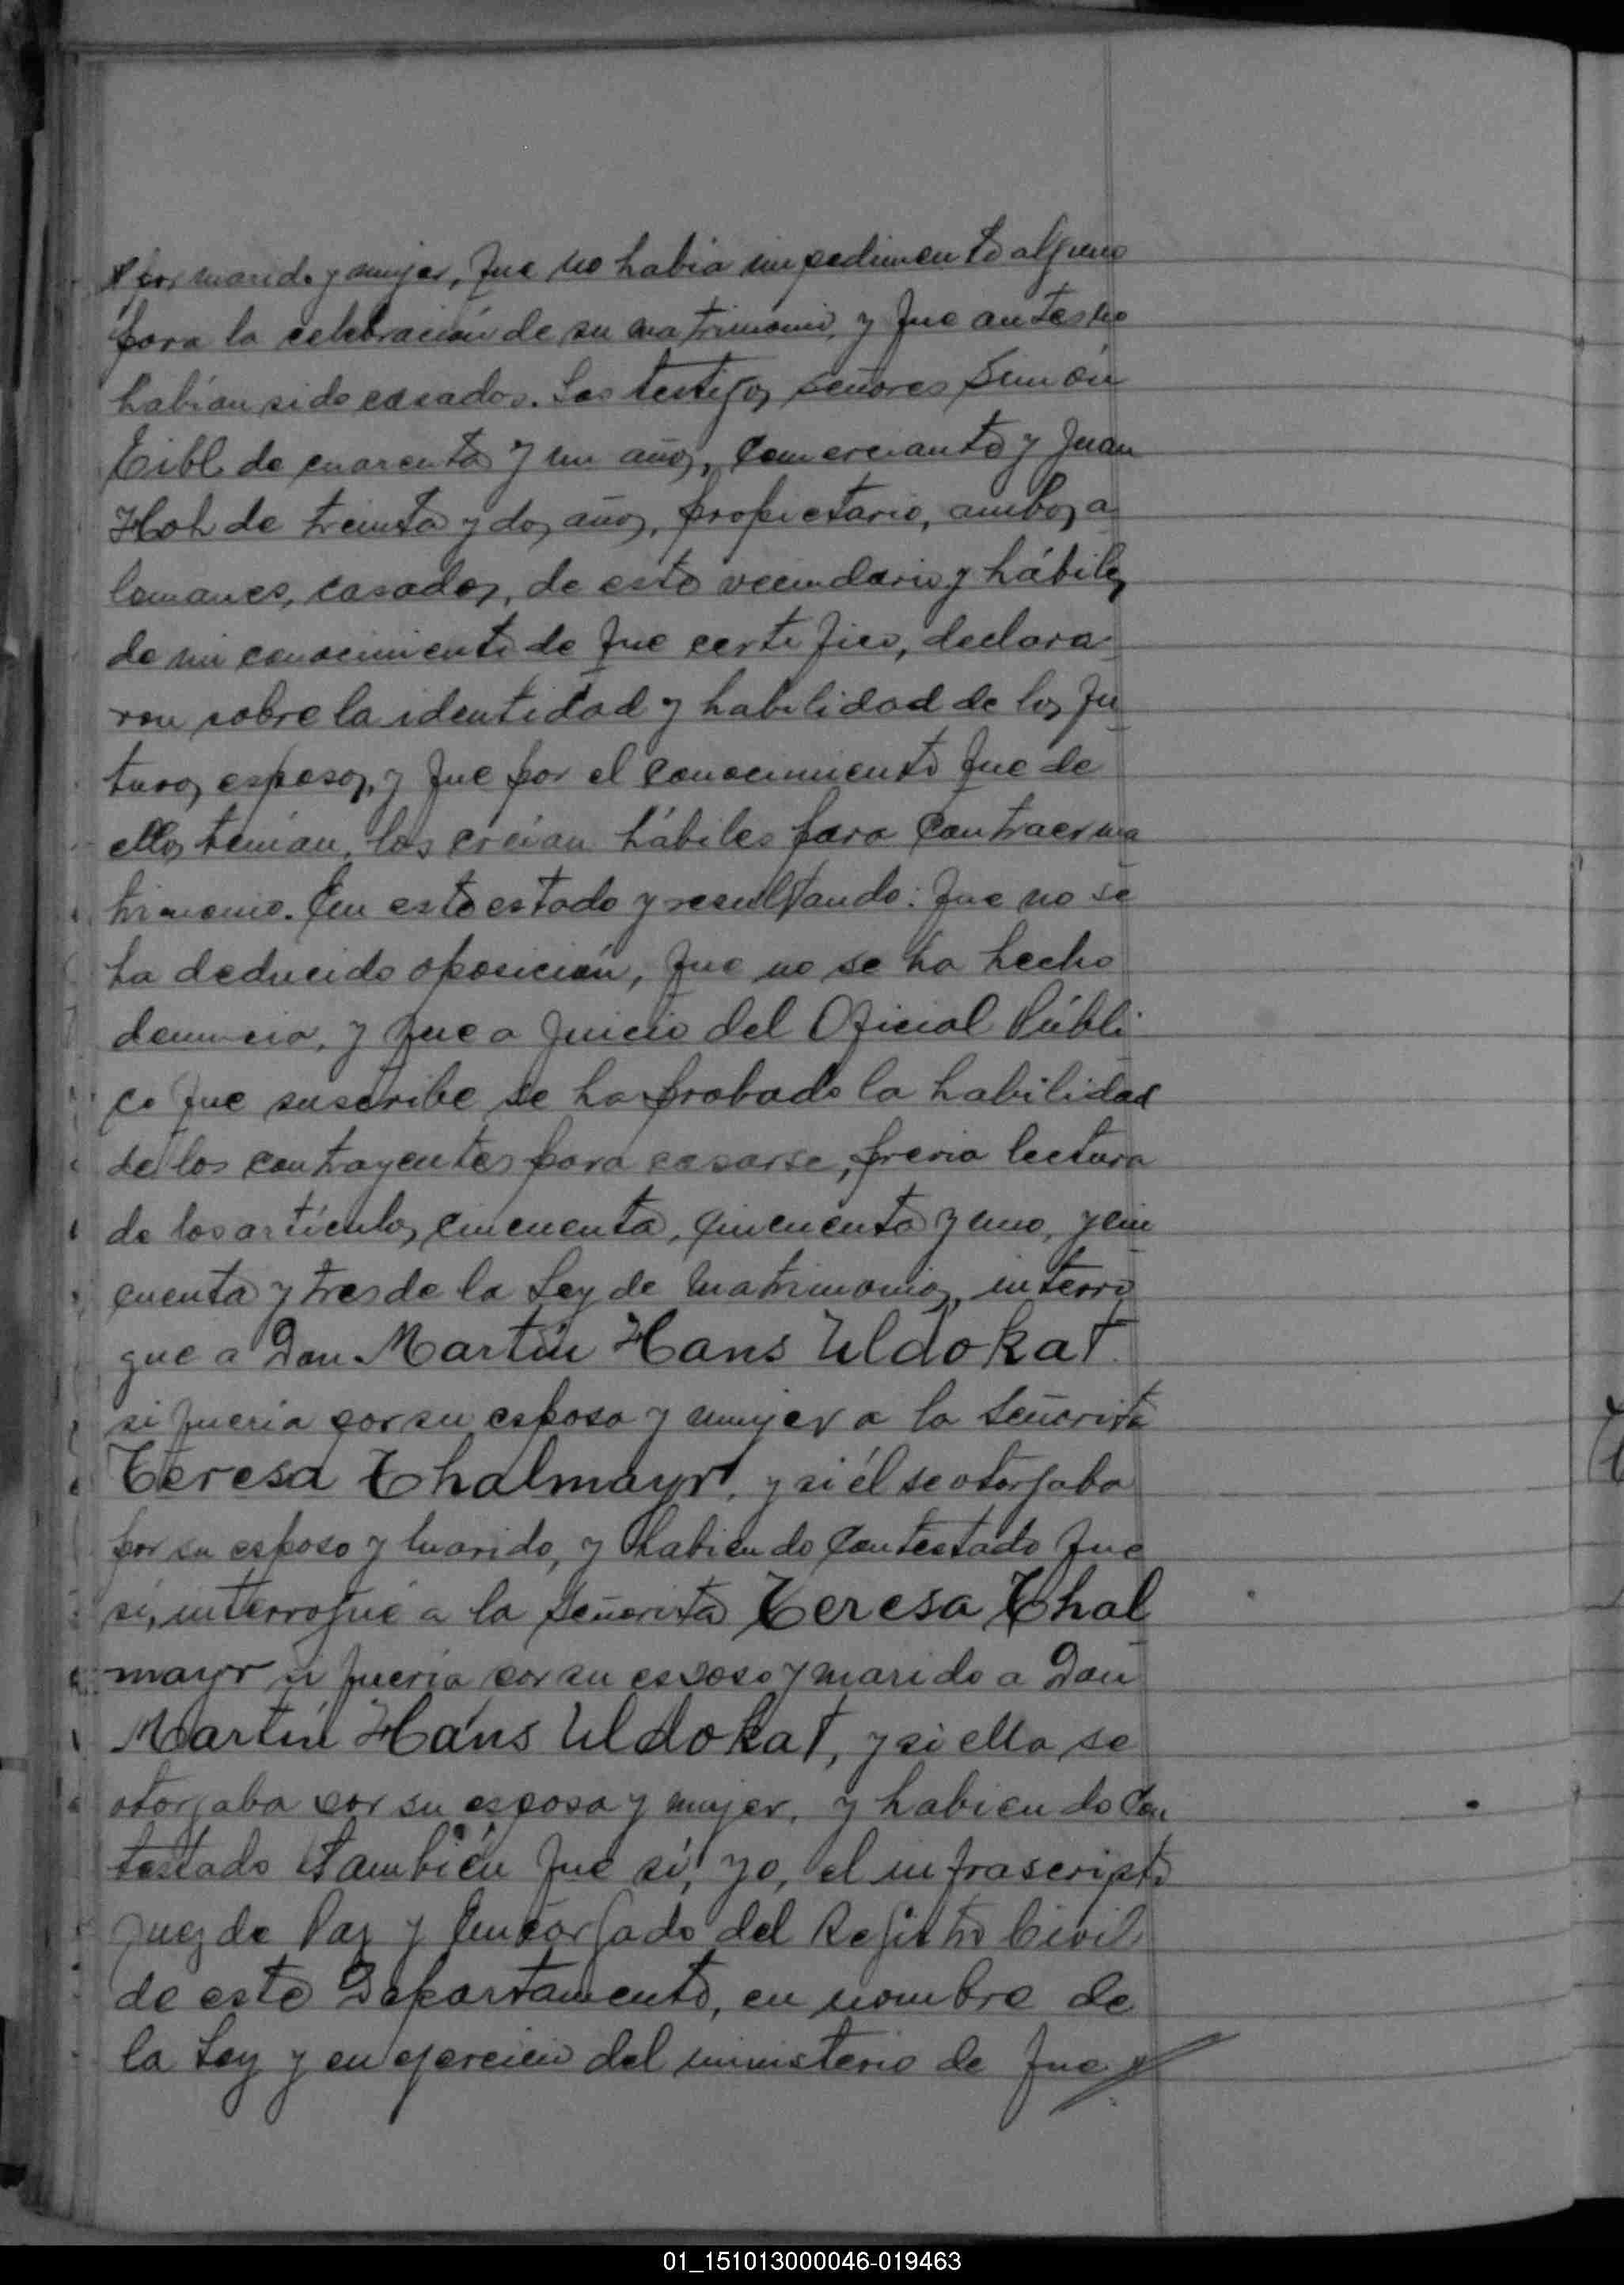 por marido y mujer, que no habia impedimento alguno
para la celebración de su matrimonio, y que antes no
habían sido casados. Los testigos señores Simón
Eibl de cuarenta y un años, comerciante y Juan
Hoh de treinta y dos años, propietario, ambos a
lemanes, casados, de este vecindario y hábiles
de mi conocimiento de que certifico, declara-
ron sobre la identidad y habilidad de los fu-
turos esposos, y que por el conocimiento que de
ellos tenían, los creían hábiles para contraer ma-
trimonio. En este estado y resultando: que no se
ha deducido oposición, que no se ha hecho
denuncia, y que a juicio del Oficial Públi-
co que suscribe se ha probado la habilidad
de los contrayentes para casarse, previa lectura
de los artículos cincuenta, cincuenta y uno, y cin-
cuenta y tres de la Ley de Matrimonios, interro
gue a Don Martín Hans Uldokat
si quería por su esposa y mujer a la Señorita
Teresa Thalmayr, y si él se otorgaba
por su esposo y marido, y habiendo contestado que
sí, interrogué a la Señorita Teresa Thal-
mayr si quería por su esposo y marido a Don
Martín Hans Uldokat, y si ella se
otorgaba por su esposa y mujer, y habiendo con
testado también que sí, yo, el infrascripto
Juez de Paz y Encargado del Registro Civil
de este Departamento, en nombre de
la Ley y en ejercicio del ministerio de que
01_151013000046-019463